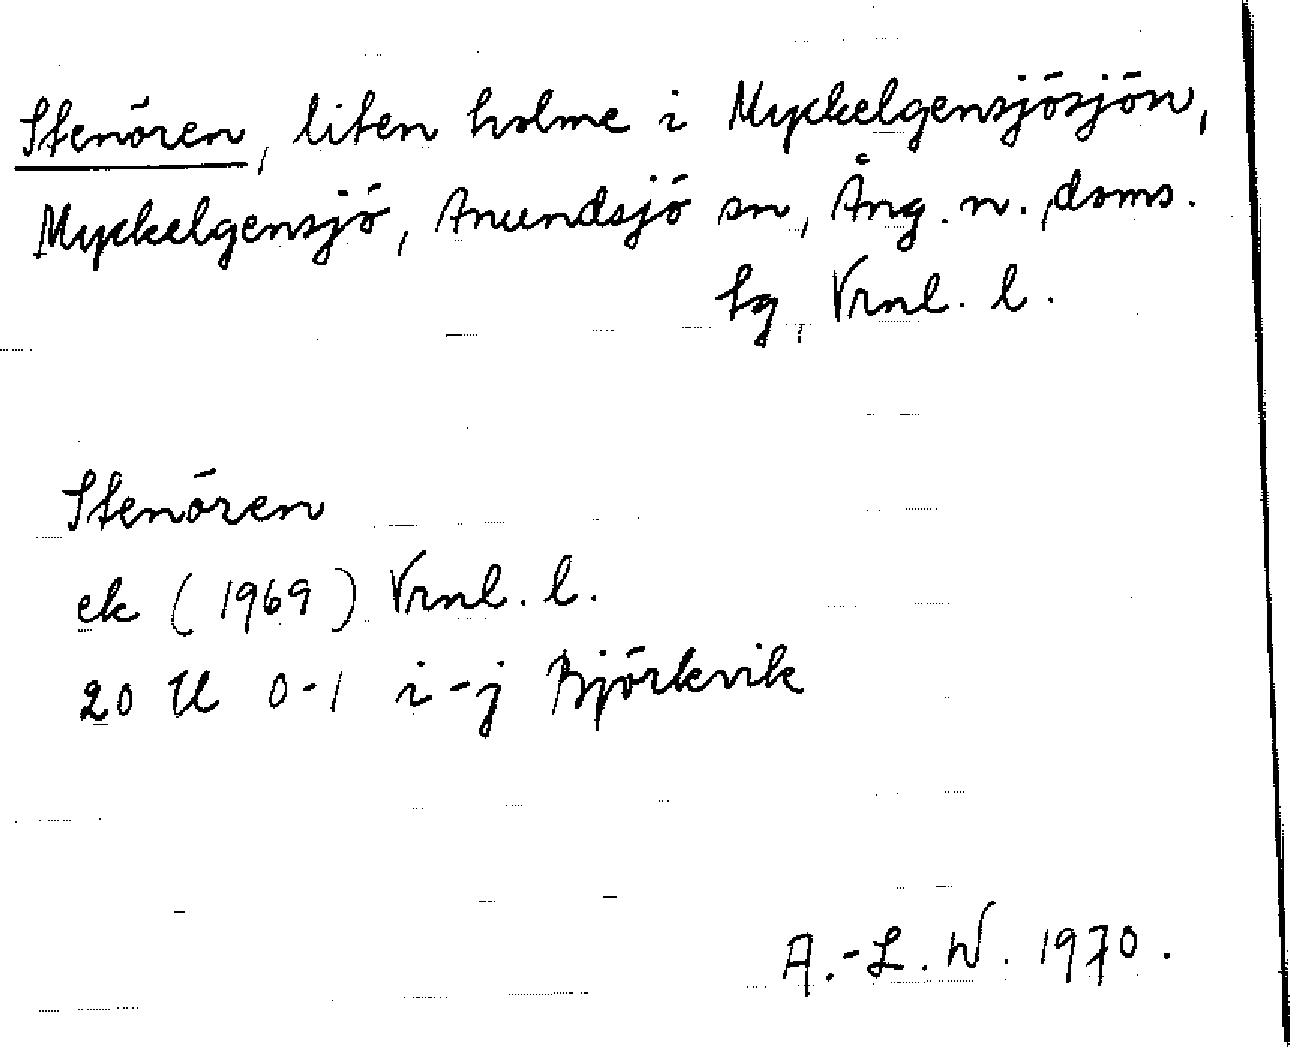 Stenören, liten holme i Myckelgensjösjön,
Myckelgensjö, Anundsjö sn, Ång. n. doms.
lg, Vrnl. l.
Stenören
ek (1969) Vrnl. l.
20 H 0-1 i-j Björkvik
A.-L. W. 1970.